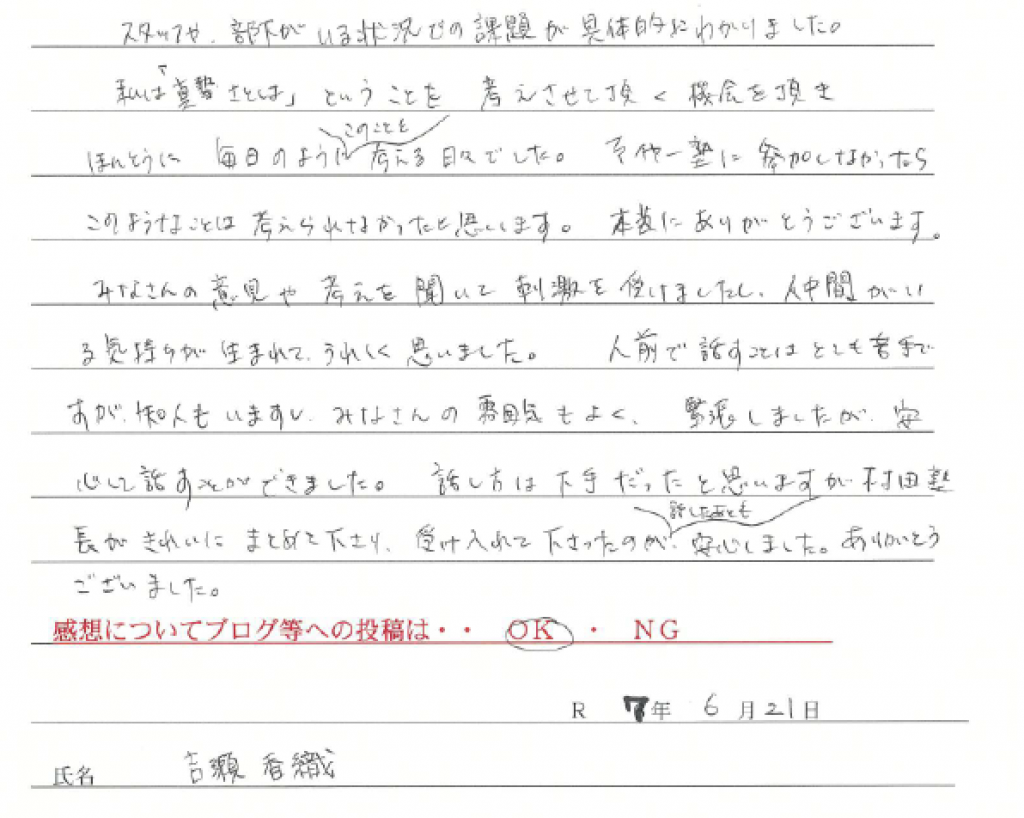 スタッフや、部下がいる状況での課題が具体的にわかりました。
私は「真摯さとは」ということを 考えさせて頂く機会を頂き
ほんとうに 毎日のように このことを 考える日々でした。 塾に参加しなかったら
このようなことは考えられなかったと思います。 本当にありがとうございます。
みなさんの意見や考えを聞いて刺激を受けましたし、仲間がい
る気持ちが生まれて、うれしく思いました。 人前で話すことはとても苦手で
すが、知人もいますし、みなさんの雰囲気もよく、緊張しましたが、安
心して話すことができました。 話し方は下手だったと思いますが村田塾
長がきれいにまとめて下さり、受け入れて下さったのが、話したあとも 安心しました。ありがとう
ございました。
感想についてブログ等への投稿は・・ OK ・ NG
R 7年 6月21日
氏名 吉瀬 香織